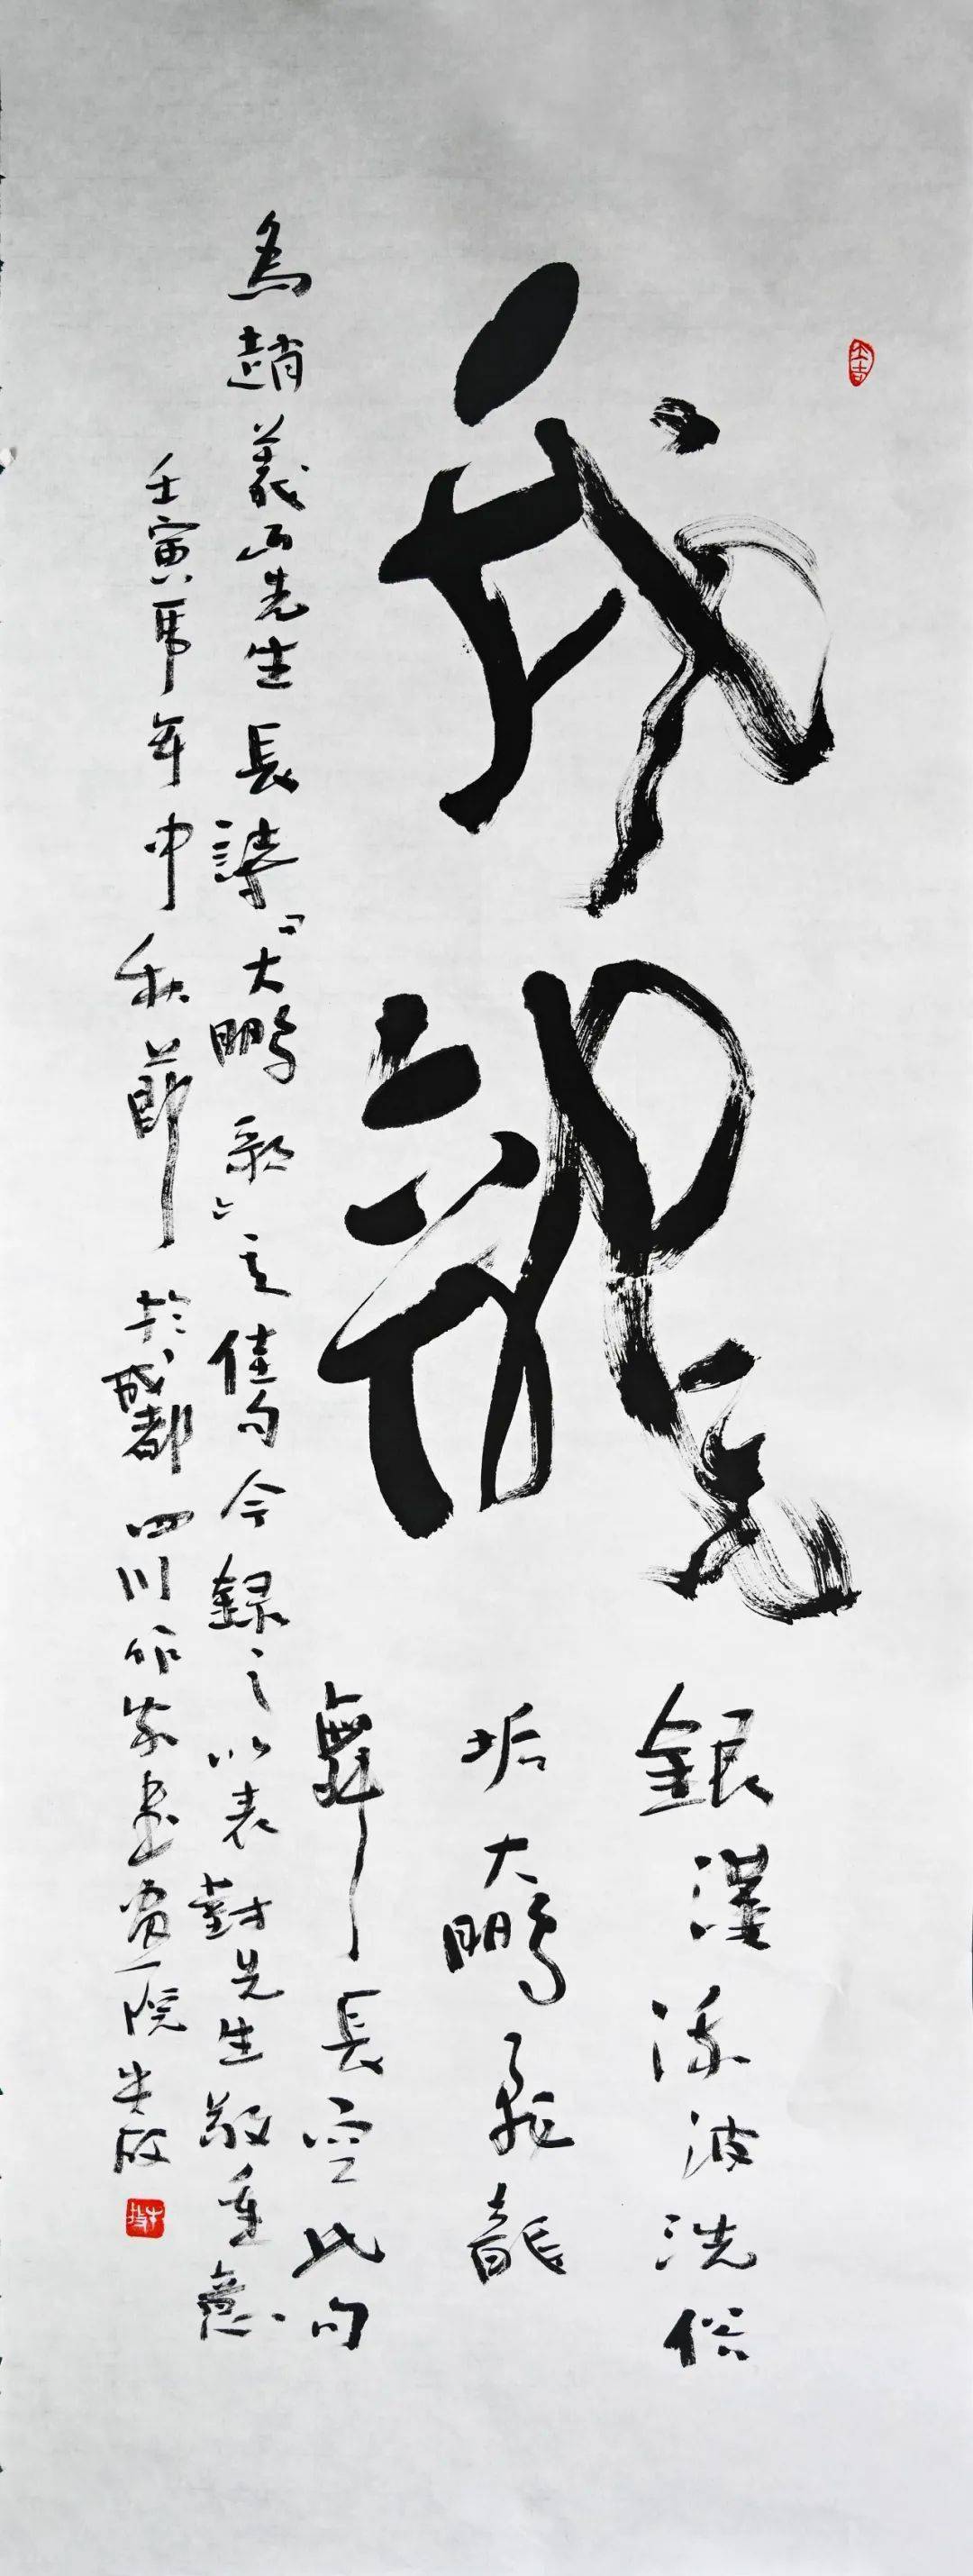 飛龍
銀漢添波洗俗
垢大鵬飛龍
舞長空此句
為趙義山先生長詩『大鵬歌』之佳句今錄之以表對先生敬重意
壬寅虎年中秋節於成都四川作家書畫院